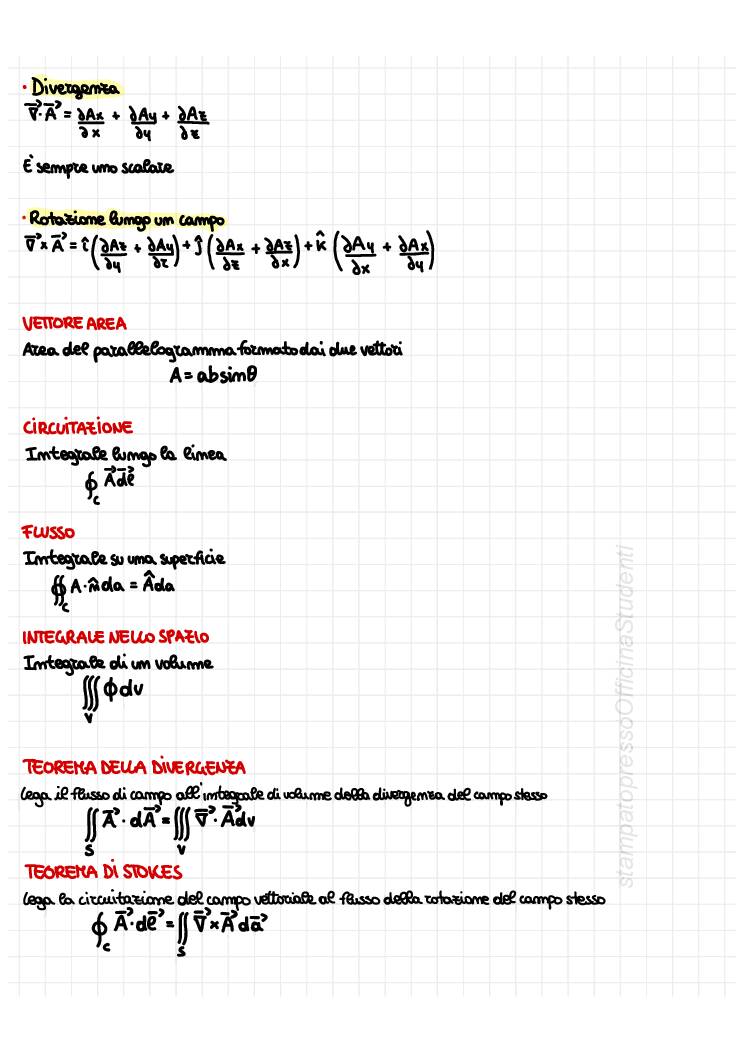 · Divergenza
∇⃗·A⃗ = ∂Ax/∂x + ∂Ay/∂y + ∂Az/∂z
È sempre uno scalare
· Rotazione lungo un campo
∇⃗×A⃗ = î(∂Az/∂y + ∂Ay/∂z) + ĵ(∂Ax/∂z + ∂Az/∂x) + k̂(∂Ay/∂x + ∂Ax/∂y)
VETTORE AREA
Area del parallelogramma formato dai due vettori
A = ab sinθ
CIRCUITAZIONE
Integrale lungo la linea
∮c A⃗ dℓ⃗
FLUSSO
Integrale su una superficie
∯c A·n̂ da = Â da
INTEGRALE NELLO SPAZIO
Integrale di un volume
∭v ϕ dv
TEOREMA DELLA DIVERGENZA
lega il flusso di campo all'integrale di volume della divergenza del campo stesso
∬s A⃗·dA⃗ = ∭v ∇⃗·A⃗ dv
TEOREMA DI STOKES
lega la circuitazione del campo vettoriale al flusso della rotazione del campo stesso
∮c A⃗·dℓ⃗ = ∬s ∇⃗×A⃗ da⃗
stampatopressoOfficinaStudenti